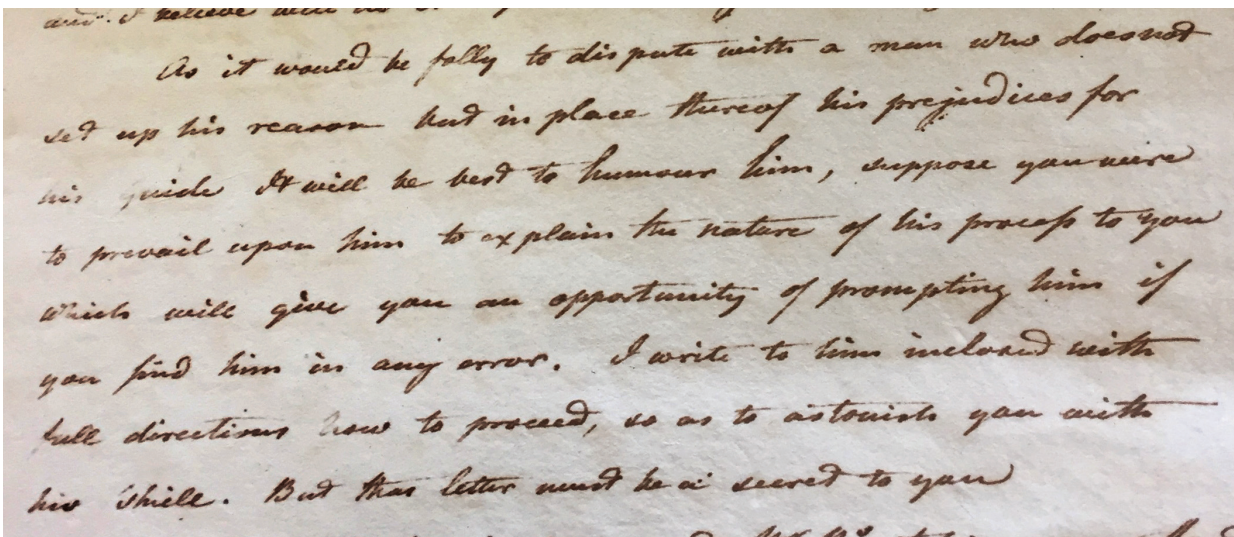 and I believe will
As it would be folly to dispute with a man who does not
set up his reason but in place thereof his prejudices for
his guide It will be best to humour him, suppose you were
to prevail upon him to explain the nature of his process to you
which will give you an opportunity of prompting him if
you find him in any error. I write to him inclosed with
full directions how to proceed, so as to astonish you with
his skill. But that letter must be a secret to you